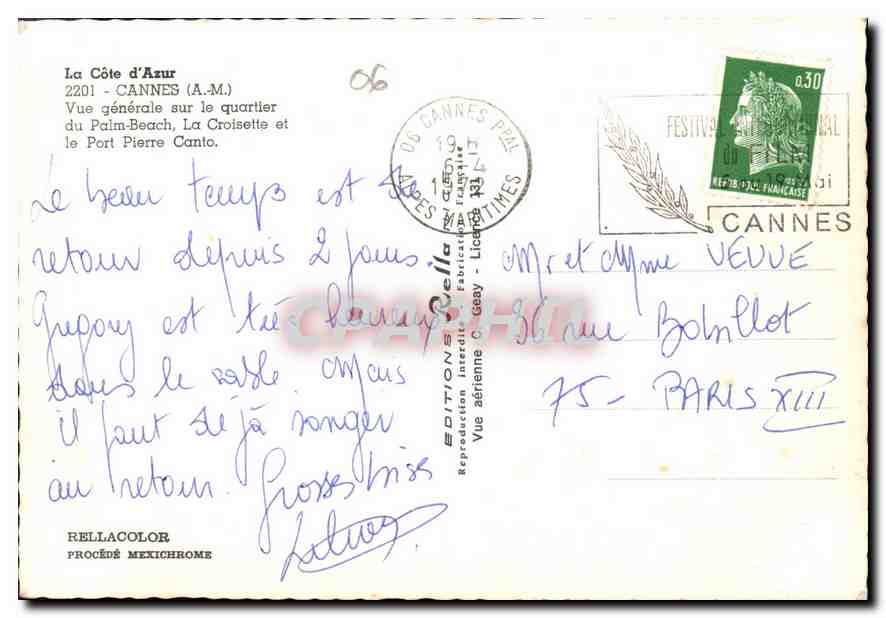 La Côte d'Azur
2201 - CANNES (A.-M.)
Vue générale sur le quartier
du Palm-Beach, La Croisette et
le Port Pierre Canto.
06
Le beau temps est de
retour depuis 2 jours.
Gregory est très heureux
dans le sable. Mais
il faut déjà songer
au retour. Grosses bises
RELLACOLOR
PROCÉDÉ MEXICHROME
EDITIONS Rella
Reproduction interdite Fabrication Française
Vue aérienne C. Geay - Licence 131
06 CANNES PPAL
ALPES MARITIMES
0,30
REPUBLIQUE FRANÇAISE
FESTIVAL INTERNATIONAL
du FILM
19 Mai
CANNES
Mr et Mme VEUVE
36 rue Bobillot
75 - PARIS XIII
CPAPHIL